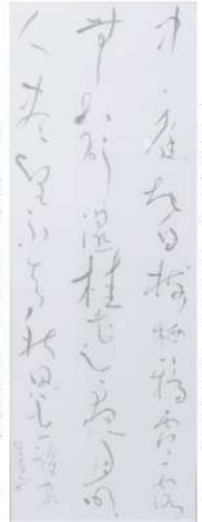 中庭地白樹栖鴉冷露
無聲濕桂花今夜月明
人盡望不知秋思落誰家